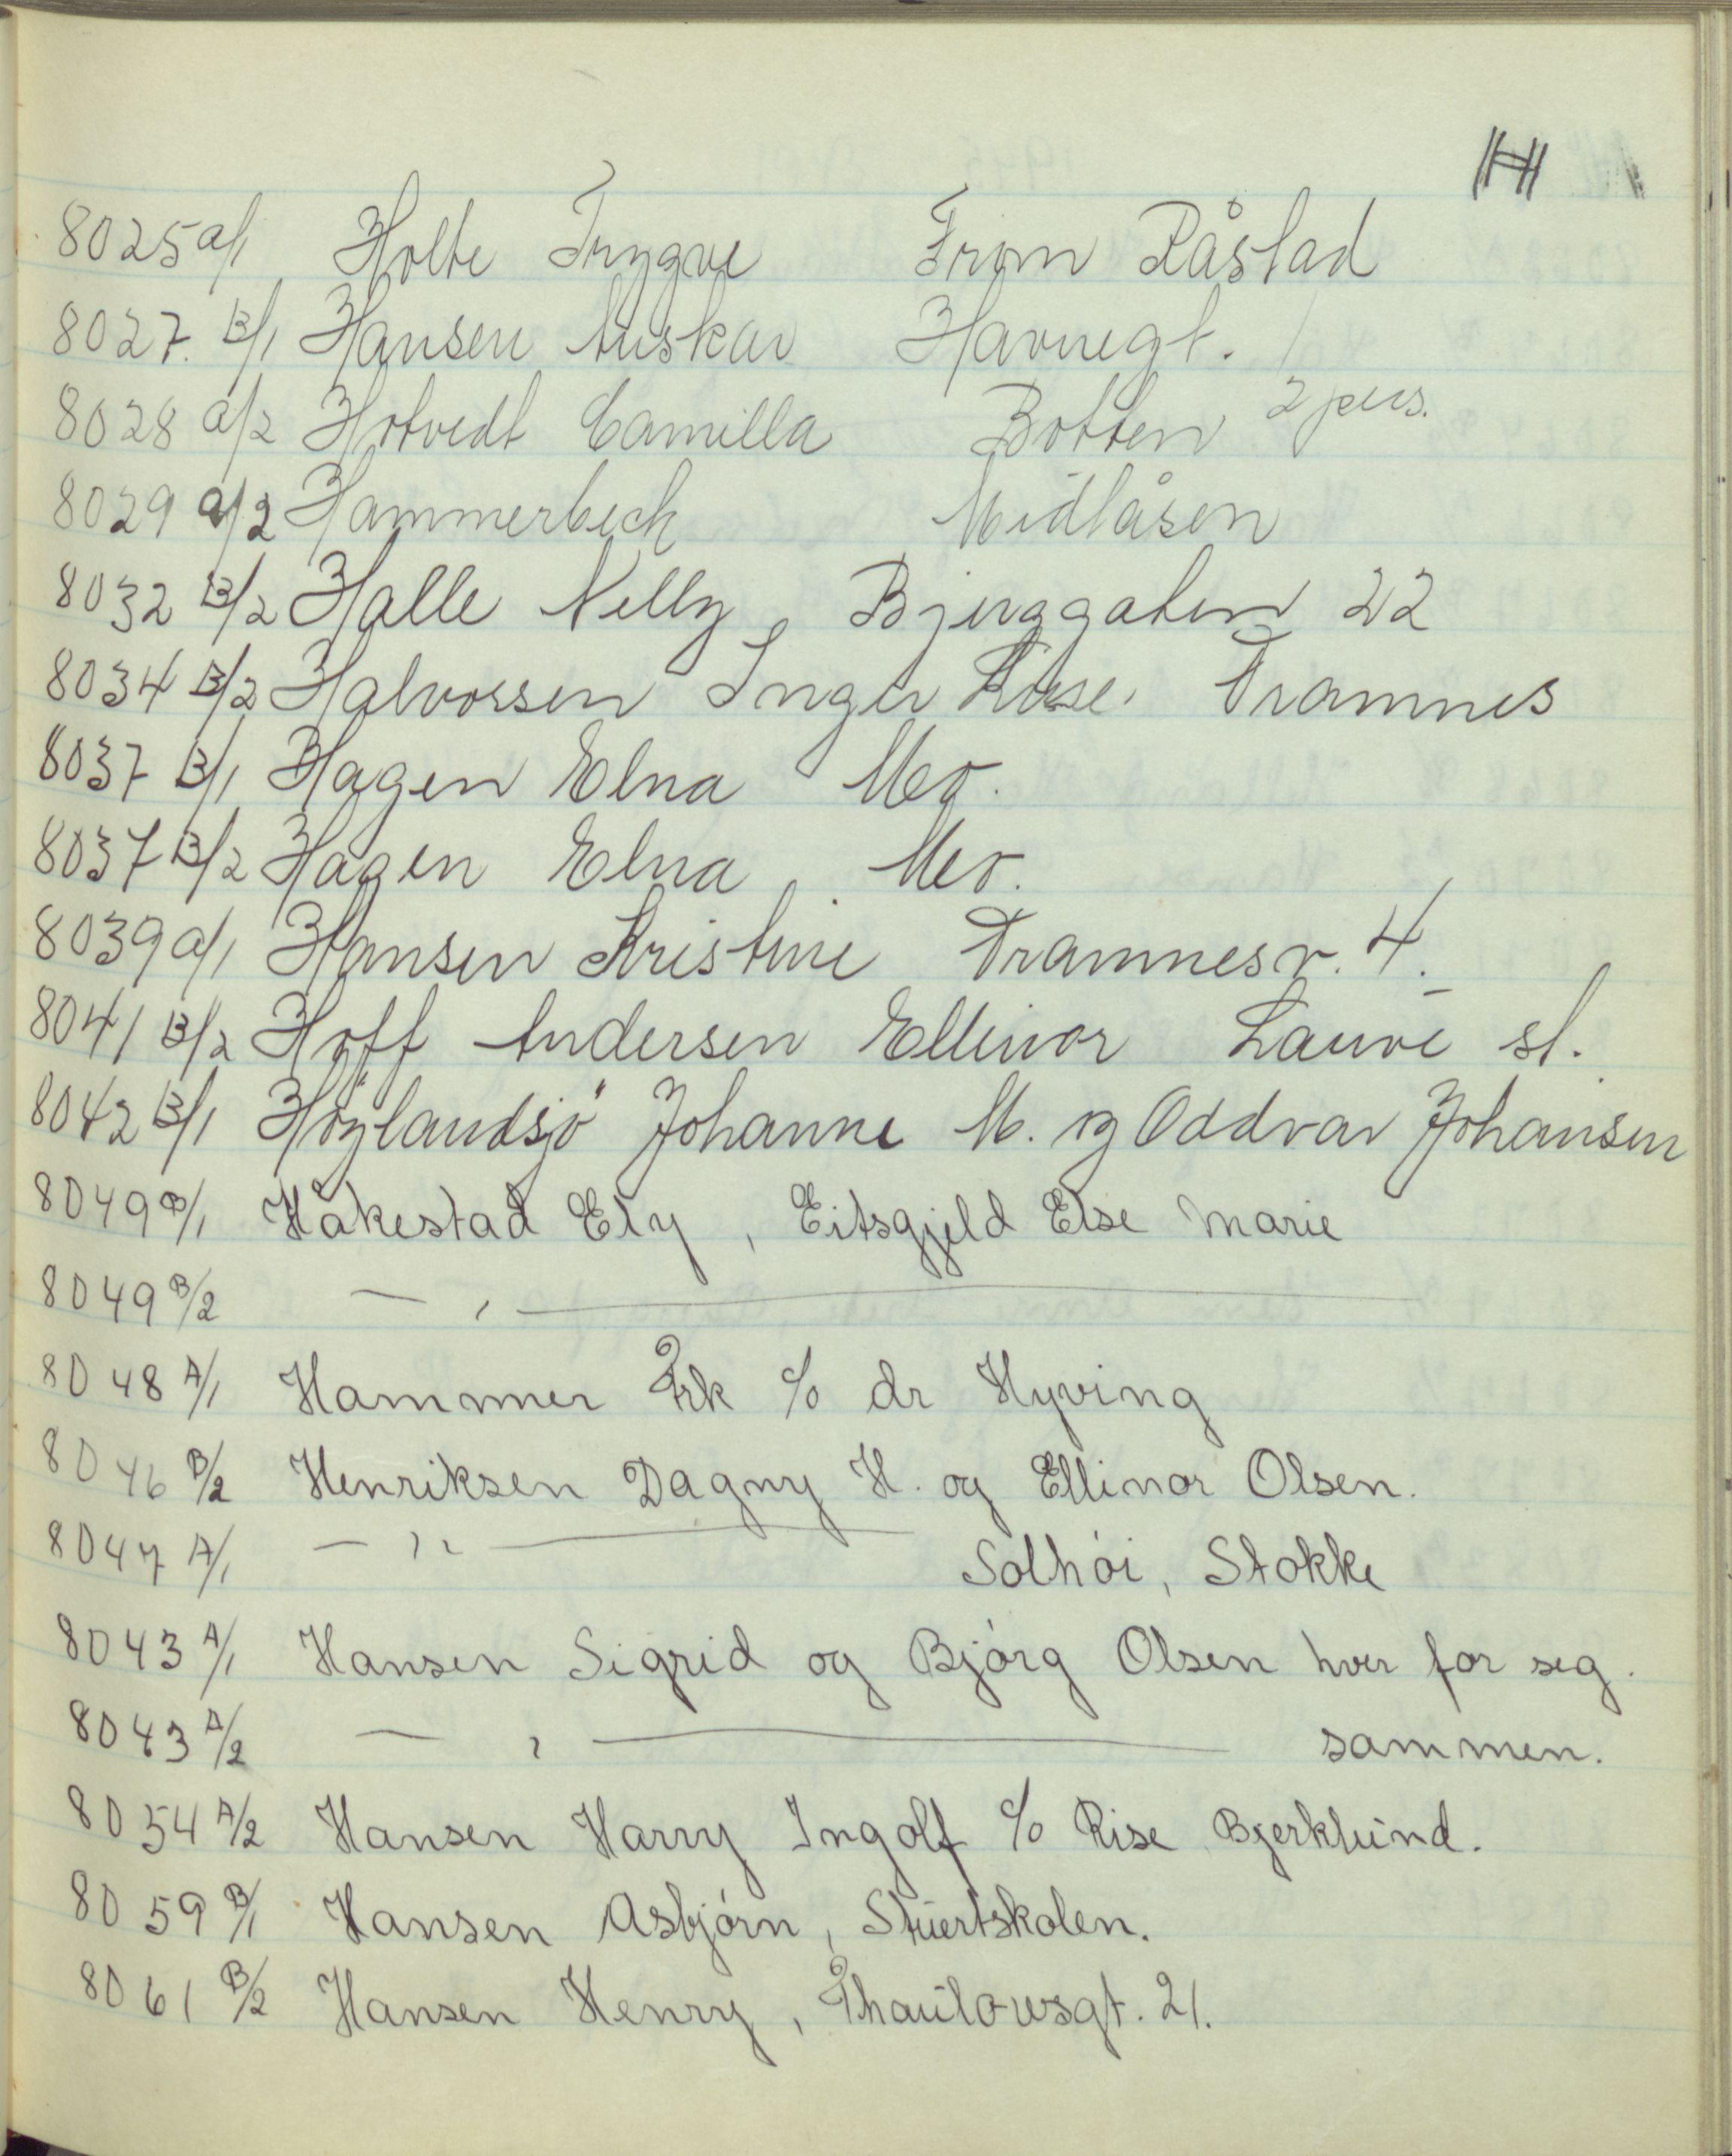 H
8025 a/1 Holte Trygve From Råstad
8027. B/1 Hansen Anskar Havnegt.
8028 a/2 Hotvedt Camilla Botten 2 pers.
8029 a/2 Hammerbeck Midtåsen
8032 B/2 Halle Nelly, Bjerggaten 22
8034 B/2 Halvorsen Inger Lise. Framnes
8037 B/1 Hagen Elna Mo.
8037 B/2 Hagen Elna Mo.
8039 a/1 Hansen Kristine Framnesv. 4.
8041 B/2 Hoff Andersen Ellinor Lauve st.
8042 B/1 Höylandsjö Johanne M. og Oddvar Johansen
8049 B/1 Håkestad Ely, Eitsgjeld Else Marie
8049 B/2 — , —
8048 A/1 Hammer Frk c/o dr Hyving
8046 B/2 Henriksen Dagny H. og Ellinor Olsen.
8047 A/1 — " — Solhøi, Stokke
8043 A/1 Hansen Sigrid og Bjørg Olsen hver for seg.
8043 A/2 — , — sammen.
8054 A/2 Hansen Harry Ingolf c/o Rise Bjerklund.
8059 B/1 Hansen Asbjørn, Stuertskolen.
8061 B/2 Hansen Henry, Thaulowsgt. 21.